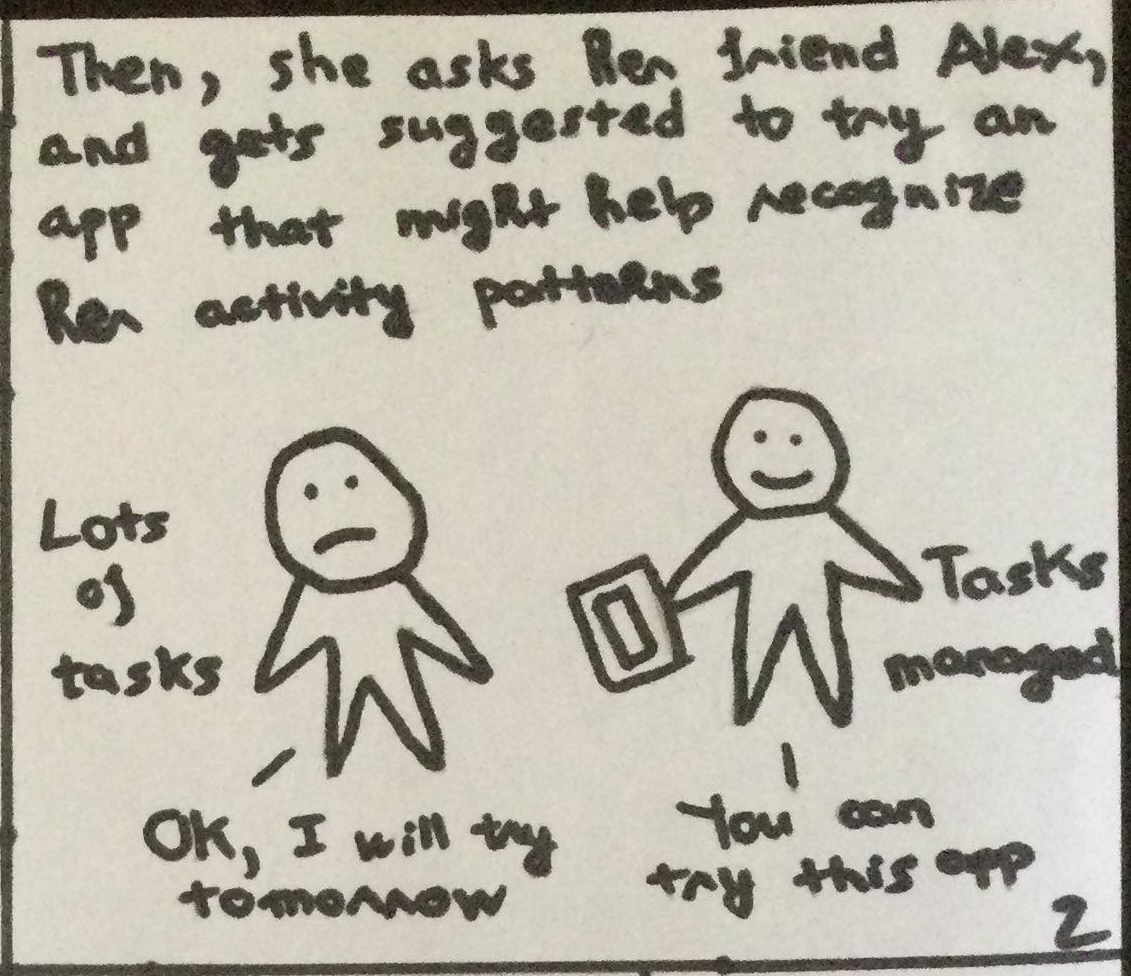 Then, she asks her friend Alex,
and gets suggested to try an
app that might help recognize
her activity patterns
Lots
of
tasks
Tasks
managed
OK, I will try
tomorrow
You can
try this app
2